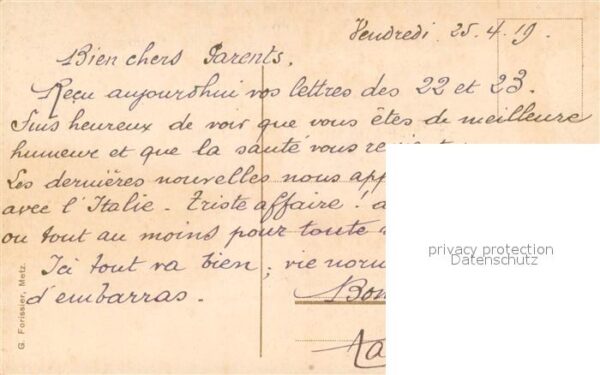 Vendredi 25.4.19.
Bien chers Parents.
Reçu aujourd'hui vos lettres des 22 et 23.
Suis heureux de voir que vous êtes de meilleure
humeur et que la santé vous
Les dernières nouvelles nous
avec l'Italie. Triste affaire.
ou tout au moins pour toute
Ici tout va bien; vie
d'embarras.
G. Forissier, Metz.
privacy protection
Datenschutz